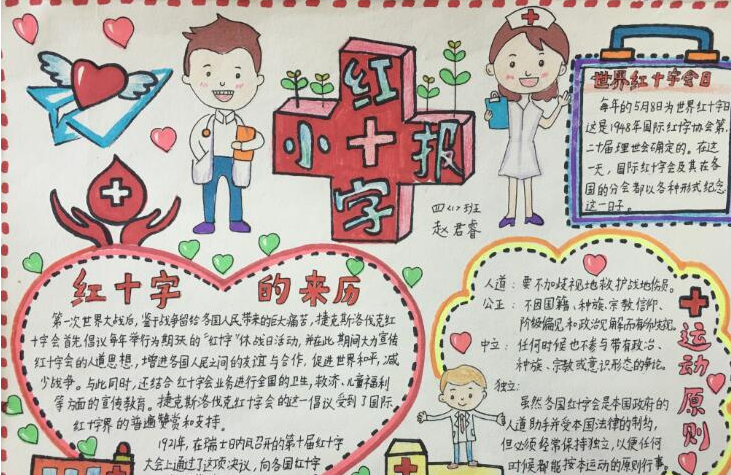 红十字小报
四(1)班
赵君睿
世界红十字会日
每年的5月8日为世界红十字日
这是1948年国际红十字协会第
二十届理世会确定的。在这
一天，国际红十字会及其在各
国的分会都以各种形式纪念
这一日子。
红十字的来历
第一次世界大战后，鉴于战争留给各国人民带来的巨大痛苦，捷克斯洛伐克红
十字会首先倡议每年举行为期三天的“红十字”休战日活动，并在此期间大力宣传
红十字会的人道思想，增进各国人民之间的友谊与合作，促进世界和平，减
少战争。与此同时，还结合红十字会业务进行全国的卫生，救济、儿童福利
等方面的宣传教育。捷克斯洛伐克红十字会的这一倡议受到了国际
红十字界的普遍赞赏和支持。
1921年，在瑞士日内瓦召开的第十届红十字
大会上通过了这项决议，向各国红十字
十运动原则
人道：要不加歧视地救护战地伤员。
公正：不因国籍、种族、宗教信仰、
阶级偏见和政治见解而有所歧视。
中立：任何时候也不参与带有政治、
种族、宗教或意识形态的争论。
独立：
虽然各国红十字会是本国政府的
人道助手并受本国法律的制约，
但必须经常保持独立，以便任何
时候都能按本运动的原则行事。